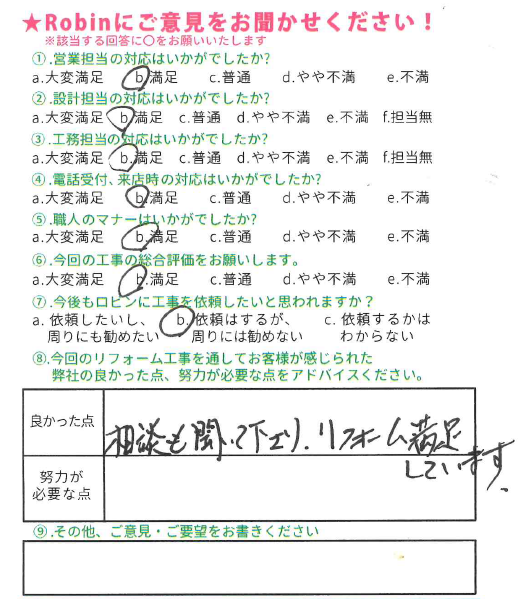 ★Robinにご意見をお聞かせください！
※該当する回答に○をお願いいたします
①.営業担当の対応はいかがでしたか?
a.大変満足 b.満足 c.普通 d.やや不満 e.不満
②.設計担当の対応はいかがでしたか?
a.大変満足 b.満足 c.普通 d.やや不満 e.不満 f.担当無
③.工務担当の対応はいかがでしたか?
a.大変満足 b.満足 c.普通 d.やや不満 e.不満 f.担当無
④.電話受付、来店時の対応はいかがでしたか?
a.大変満足 b.満足 c.普通 d.やや不満 e.不満
⑤.職人のマナーはいかがでしたか?
a.大変満足 b.満足 c.普通 d.やや不満 e.不満
⑥.今回の工事の総合評価をお願いします。
a.大変満足 b.満足 c.普通 d.やや不満 e.不満
⑦.今後もロビンに工事を依頼したいと思われますか？
a. 依頼したいし、 b. 依頼はするが、 c. 依頼するかは
周りにも勧めたい 周りには勧めない わからない
⑧.今回のリフォーム工事を通してお客様が感じられた
弊社の良かった点、努力が必要な点をアドバイスください。
良かった点 相談も聞いて下さり、リフォーム満足
しています。
努力が
必要な点
⑨.その他、ご意見・ご要望をお書きください